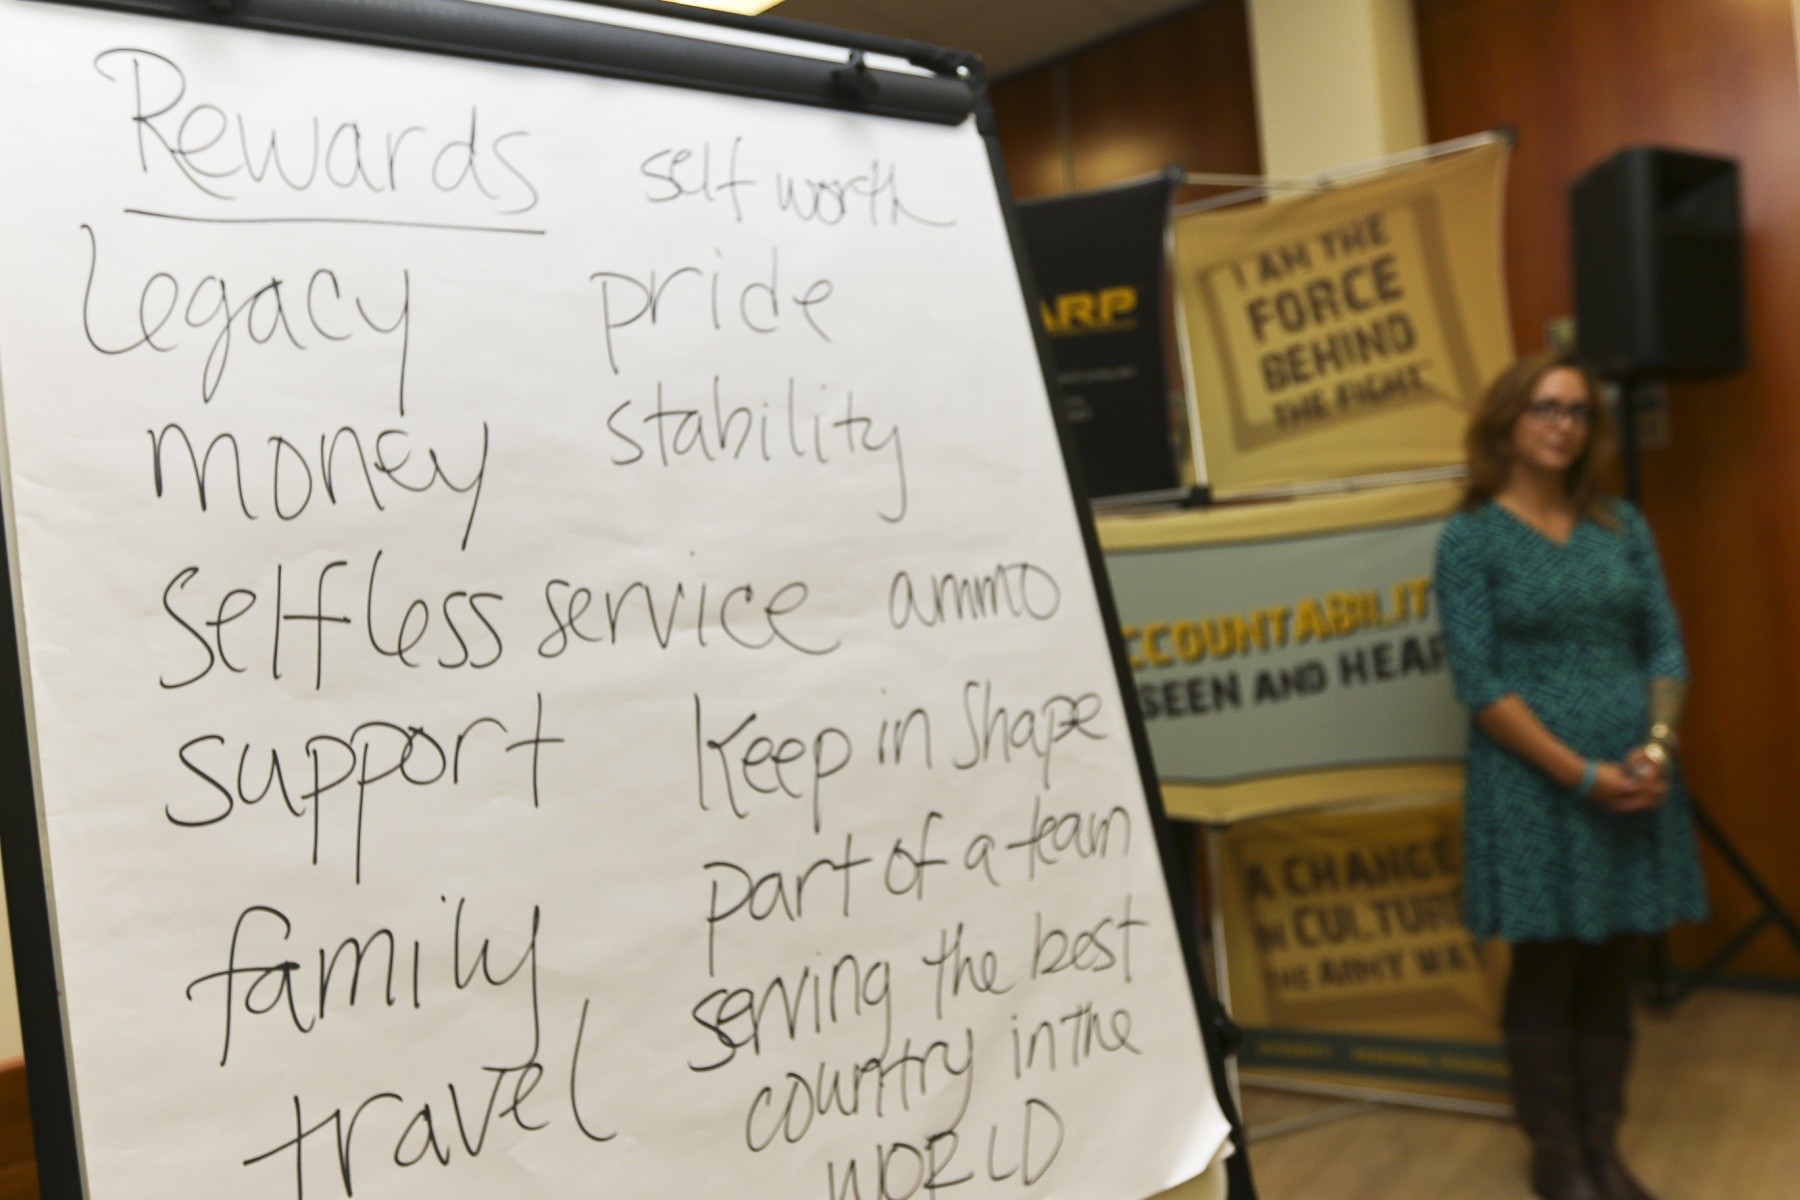 Rewards
legacy
money
selfless service
support
family
travel
self worth
pride
stability
ammo
Keep in Shape
part of a team
serving the best
country in the
WORLD
ARP
I AM THE
FORCE
BEHIND
THE FIGHT
CCOUNTABILIT
SEEN AND HEAR
A CHANCE
IN CULTURE
THE ARMY WAY